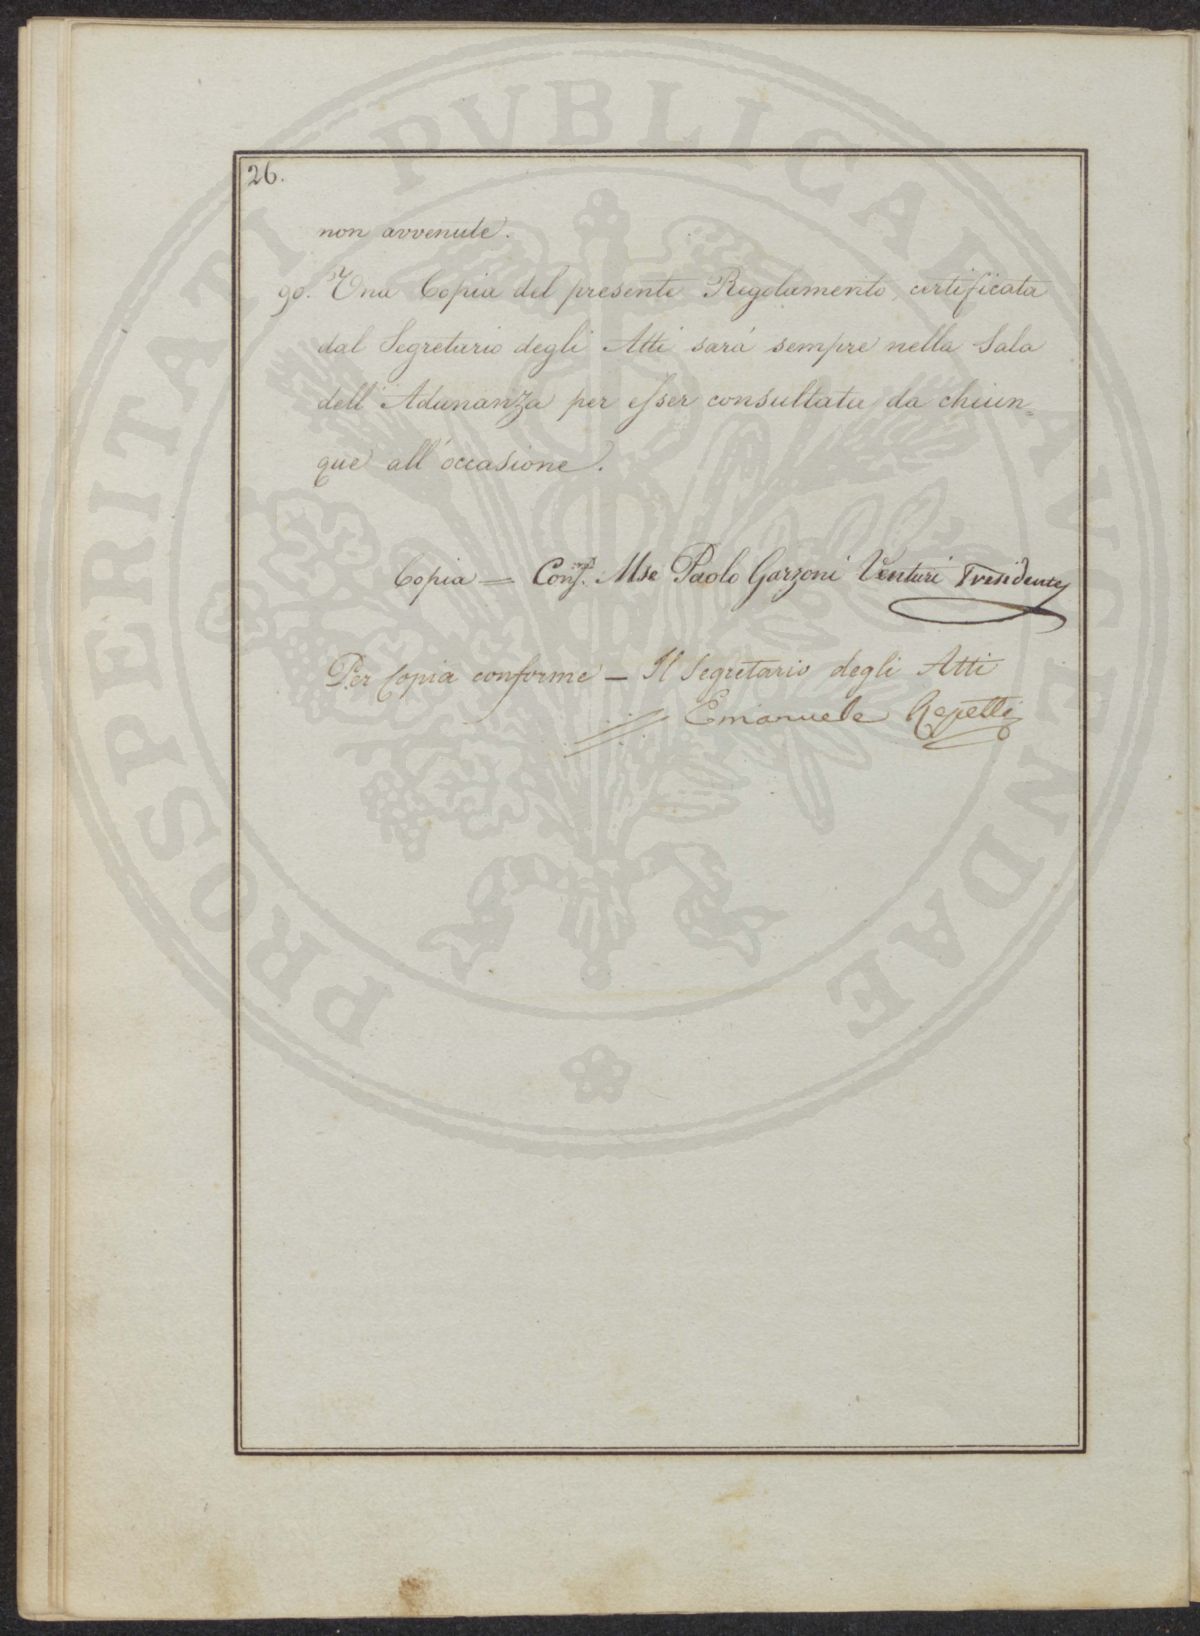 26.
non avvenute.
90. Una Copia del presente Regolamento, certificata
dal Segretario degli Atti sarà sempre nella Sala
dell'Adunanza per esser consultata da chiun=
que all'occasione.
Copia = Mse Paolo Garzoni Venturi Presidente
Per Copia conforme — Il Segretario degli Atti
Emanuele Repetti
PROSPERITATI PVBLICAE AVGENDAE